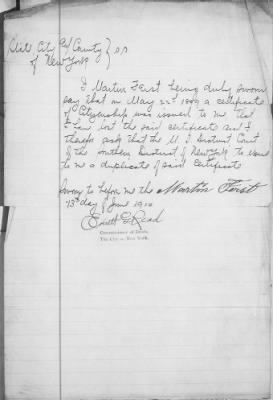 State City & County } ss
of New York
I Martin Feist being duly sworn
say that on May 22d 1889 a certificate
of Citizenship was issued to me that
I have lost the said certificate and I
therefor ask that the U. S. District Court
of the southern District of New York to issue
to me a duplicate of said Certificate
Sworn to before me this Martin Feist
13th day of June 1910
Read
Commissioner of Deeds,
The City of New York.